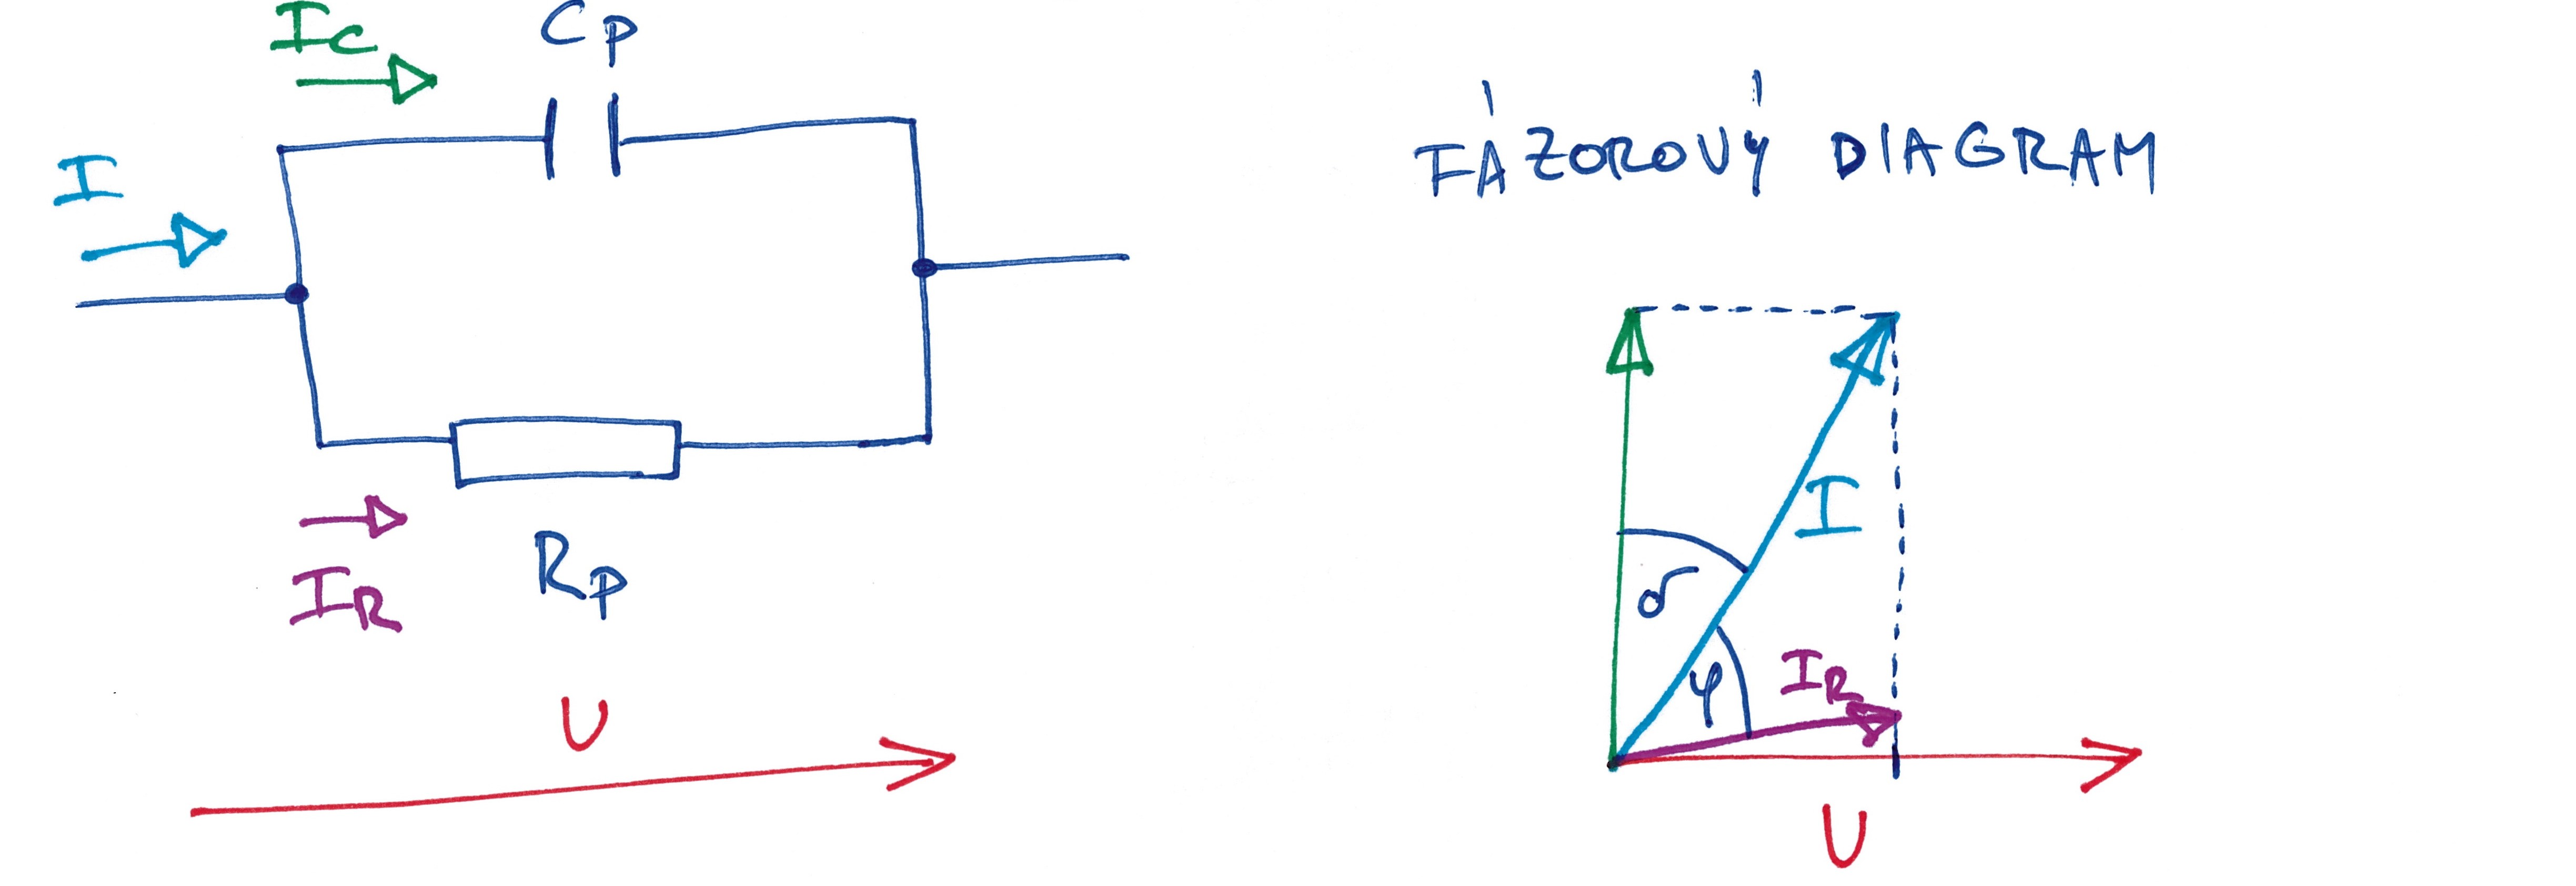 I_C
C_P
I
I_R
R_P
U
FÁZOROVÝ DIAGRAM
I
δ
φ
I_R
U